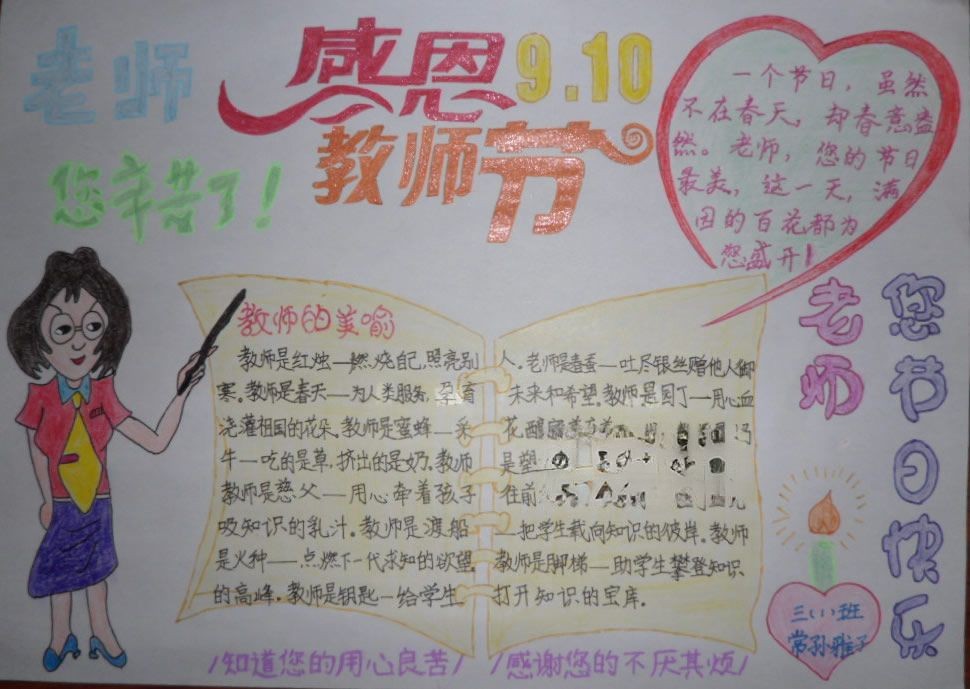 老师
您辛苦了！
感恩
9.10
教师节
一个节日，虽然
不在春天，却春意盎
然。老师，您的节日
最美，这一天，满
园的百花都为
您盛开！
教师的美喻
教师是红烛—燃烧自己，照亮别
寒。教师是春天—为人类服务，孕育
浇灌祖国的花朵。教师是蜜蜂—采
牛—吃的是草，挤出的是奶。教师
教师是慈父—用心牵着孩子
吸知识的乳汁。教师是渡船
是火种—点燃下一代求知的欲望
的高峰。教师是钥匙—给学生
人。老师是春蚕—吐尽银丝赠他人御
未来和希望。教师是园丁—用心血
花酿
是塑
往前
—把学生载向知识的彼岸。教师
教师是脚梯—助学生攀登知识
打开知识的宝库。
老师
您节日快乐
三（1）班
常孙雅子
/知道您的用心良苦/
/感谢您的不厌其烦/